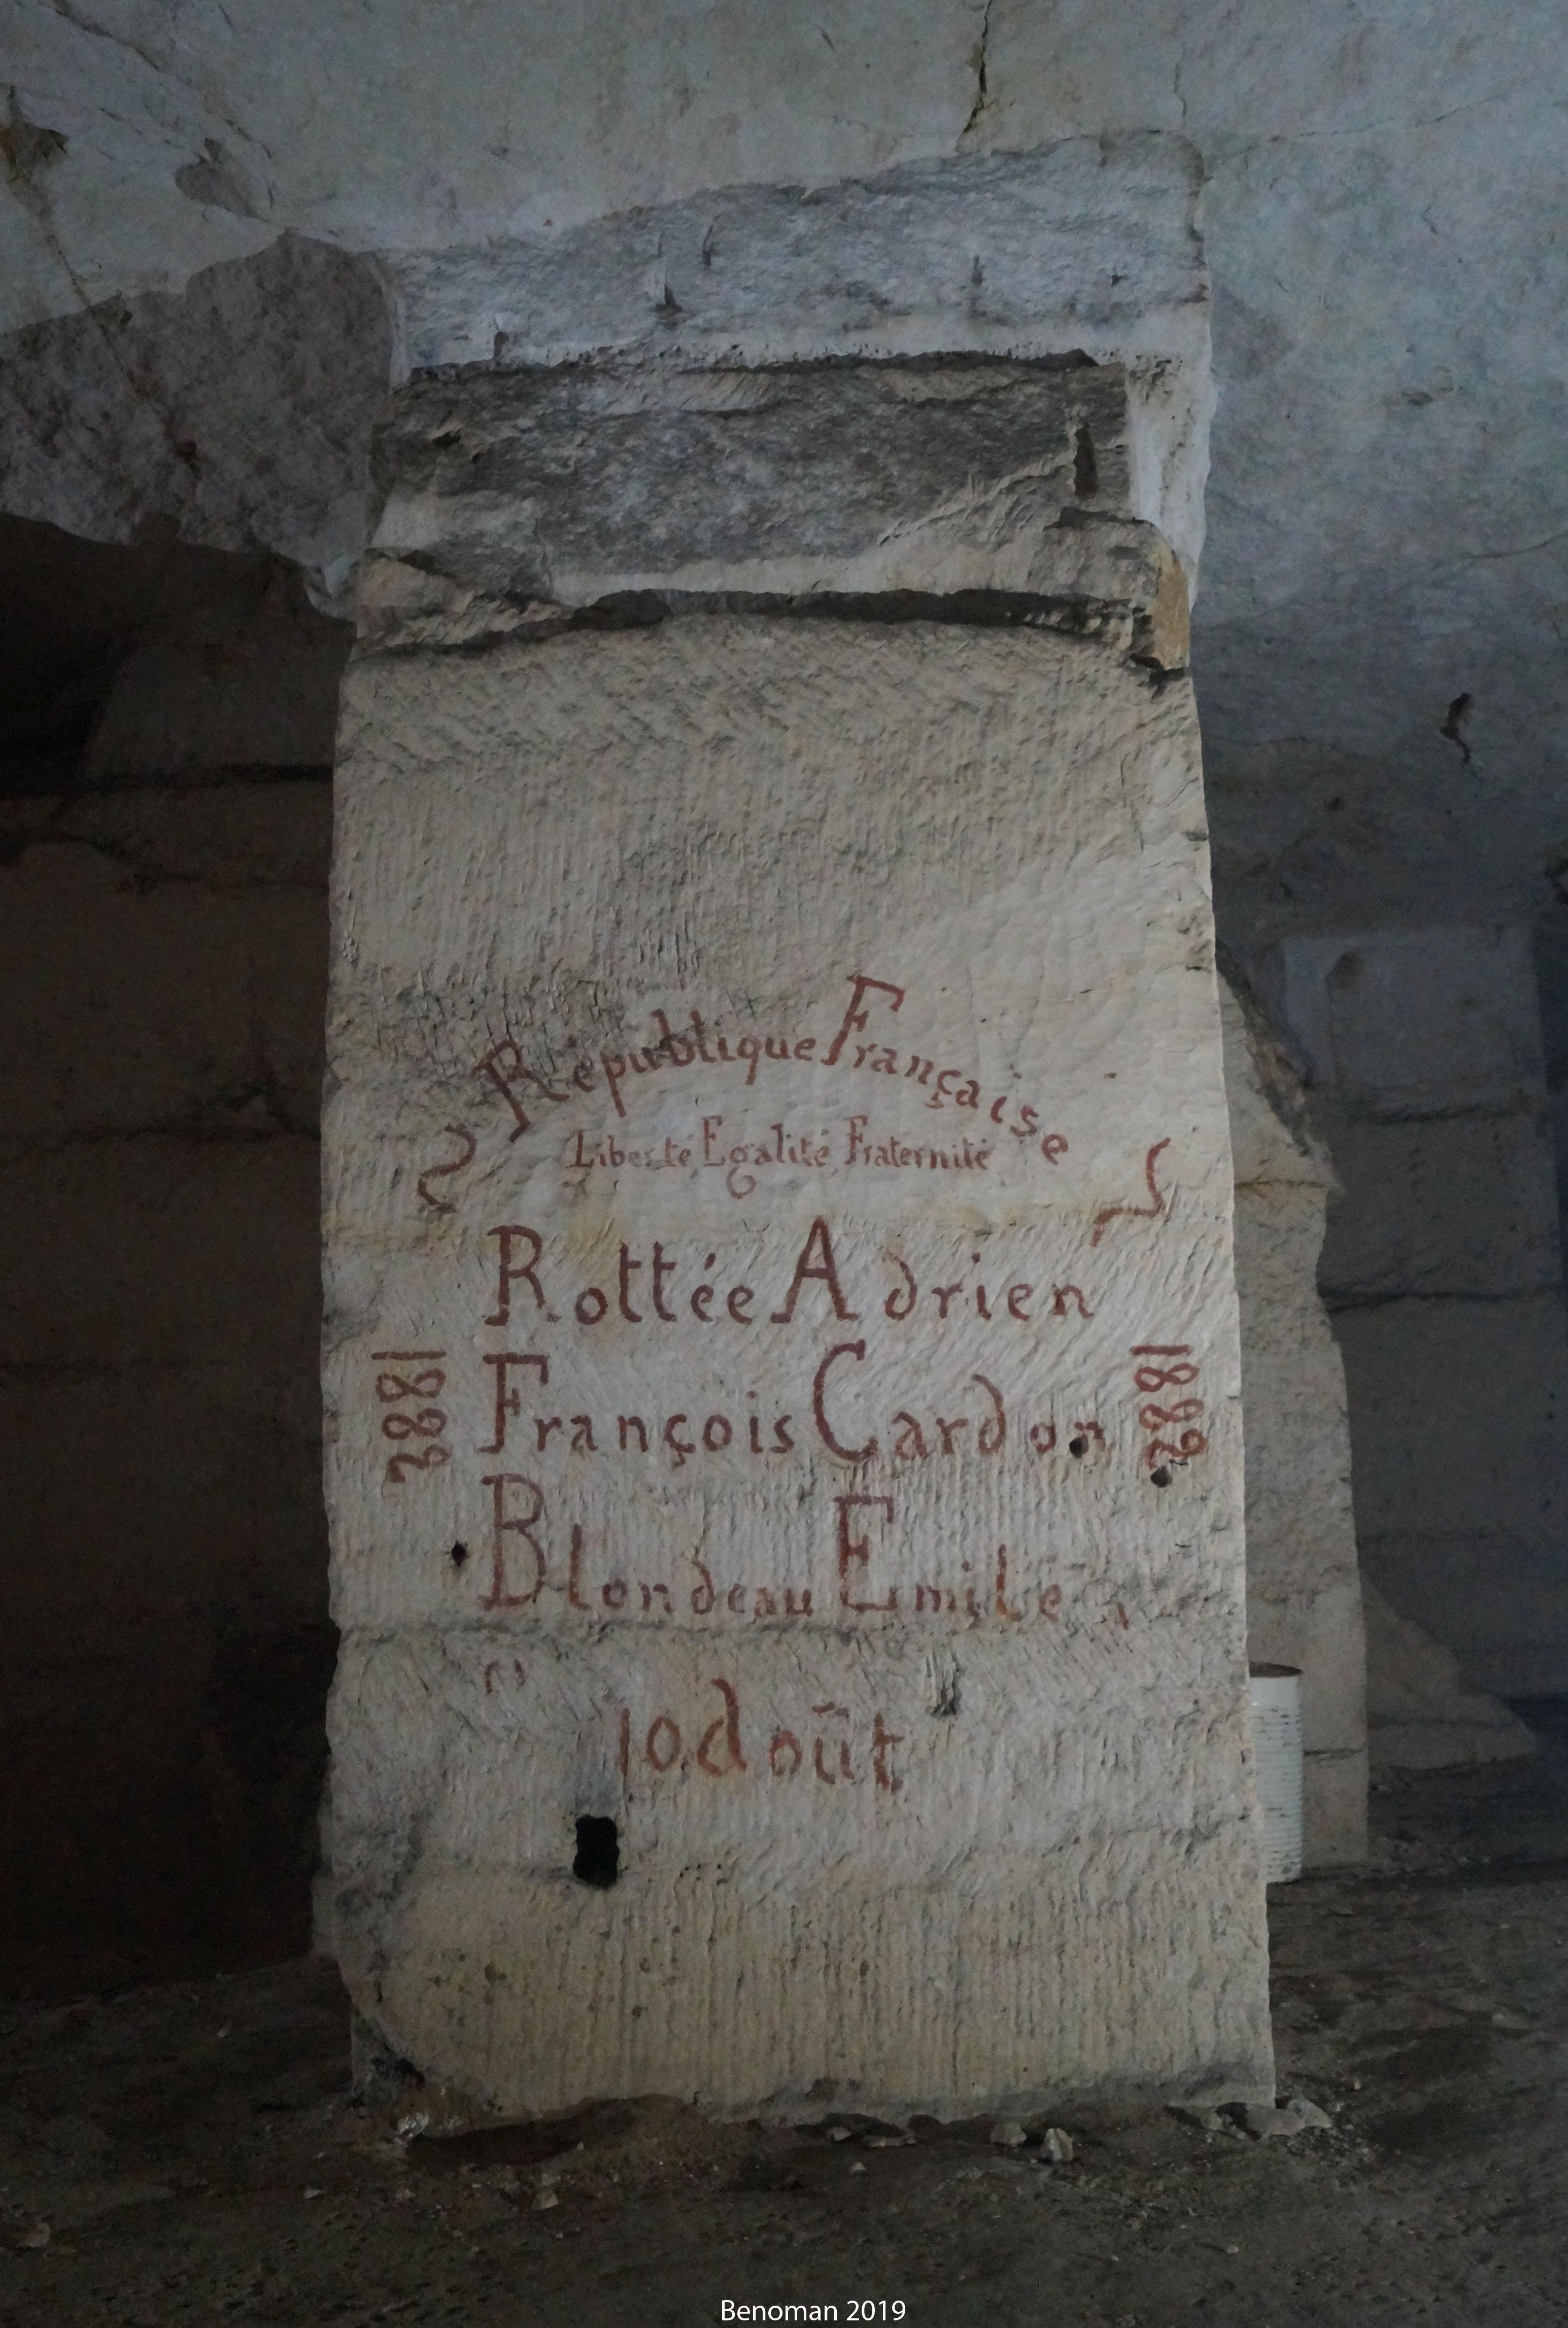 République Française
Liberté Egalité Fraternité
Rottée Adrien
1882
François Cardon
1882
Blondeau Emile
10 doût
Benoman 2019